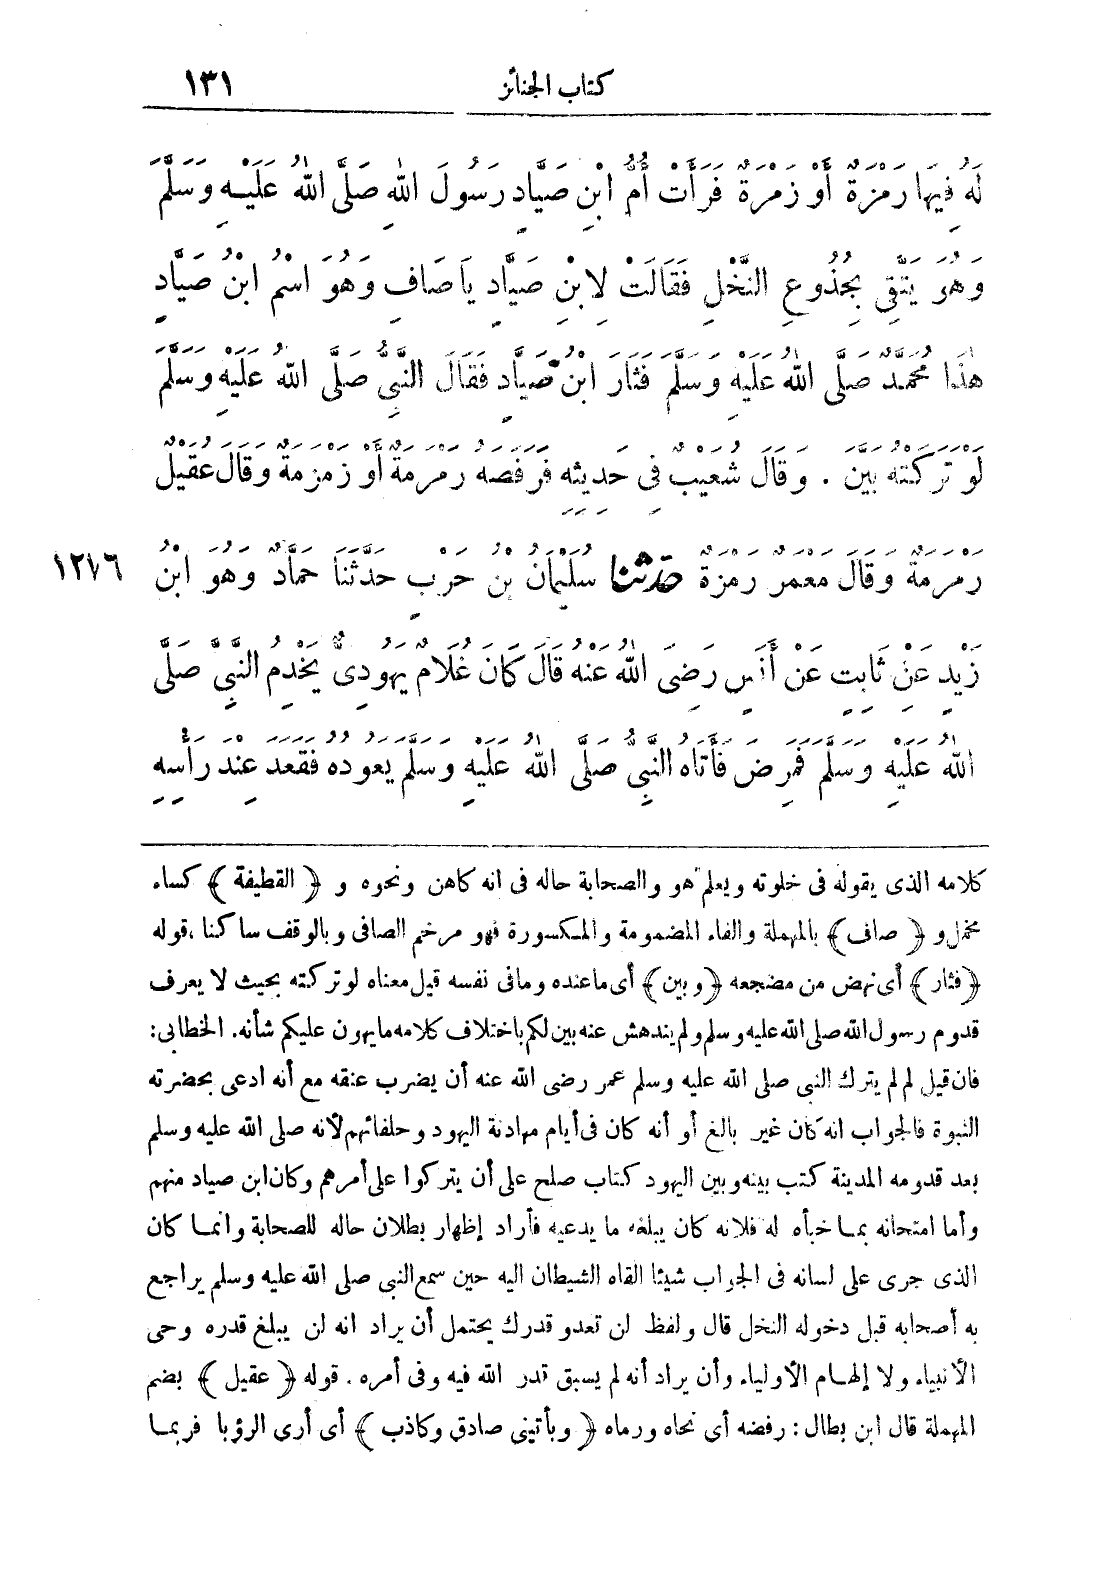 كتاب الجنائز ١٣١
لَهُ فِيهَا رَمْزَةٌ أَوْ زَمْرَةٌ فَرَأَتْ أُمُّ ابْنِ صَيَّادٍ رَسُولَ اللهِ صَلَّى اللهُ عَلَيْهِ وَسَلَّمَ
وَهُوَ يَتَّقِى بِجُذُوعِ النَّخْلِ فَقَالَتْ لِابْنِ صَيَّادٍ يَاصَافِ وَهُوَ اسْمُ ابْنُ صَيَّادٍ
هٰذَا مُحَمَّدٌ صَلَّى اللهُ عَلَيْهِ وَسَلَّمَ فَثَارَ ابْنُ صَيَّادٍ فَقَالَ النَّبِىُّ صَلَّى اللهُ عَلَيْهِ وَسَلَّمَ
لَوْ تَرَكَتْهُ بَيَّنَ . وَقَالَ شُعَيْبٌ فِى حَدِيثِهِ فَرَفَصَهُ رَمْرَمَةٌ أَوْ زَمْزَمَةٌ وَقَالَ عُقَيْلٌ
رَمْرَمَةٌ وَقَالَ مَعْمَرٌ رَمْزَةٌ حَدَّثَنَا سُلَيْمَانُ بْنُ حَرْبٍ حَدَّثَنَا حَمَّادٌ وَهُوَ ابْنُ ١٢٧٦
زَيْدٍ عَنْ ثَابِتٍ عَنْ أَنَسٍ رَضِىَ اللهُ عَنْهُ قَالَ كَانَ غُلَامٌ يَهُودِىٌّ يَخْدِمُ النَّبِىَّ صَلَّى
اللهُ عَلَيْهِ وَسَلَّمَ فَمَرِضَ فَأَتَاهُ النَّبِىُّ صَلَّى اللهُ عَلَيْهِ وَسَلَّمَ يَعُودُهُ فَقَعَدَ عِنْدَ رَأْسِهِ
كلامه الذى يقوله فى خلوته ويعلم هو والصحابة حاله فى انه كاهن ونحوه و ﴿ القطيفة ﴾ كساء
مخمل و ﴿ صاف ﴾ بالمهملة والفاء المضمومة والمكسورة فهو مرخم الصافى وبالوقف ساكنا ، قوله
﴿ فثار ﴾ أى نهض من مضجعه ﴿ وبين ﴾ أى ماعنده ومافى نفسه قيل معناه لو تركته بحيث لا يعرف
قدوم رسول الله صلى الله عليه وسلم ولم يندهش عنه بين لكم باختلاف كلامه مايهون عليكم شأنه. الخطابى:
فان قيل لم لم يترك النبى صلى الله عليه وسلم عمر رضى الله عنه أن يضرب عنقه مع أنه ادعى بحضرته
النبوة فالجواب انه كان غير بالغ أو أنه كان فى أيام مهادنة اليهود وحلفائهم لأنه صلى الله عليه وسلم
بعد قدومه المدينة كتب بينه وبين اليهود كتاب صلح على أن يتركوا على أمرهم وكان ابن صياد منهم
وأما امتحانه بما خبأه له فلانه كان يبلغه ما يدعيه فأراد إظهار بطلان حاله للصحابة وانما كان
الذى جرى على لسانه فى الجواب شيئا القاه الشيطان اليه حين سمع النبى صلى الله عليه وسلم يراجع
به أصحابه قبل دخوله النخل قال ولفظ لن تعدو قدرك يحتمل أن يراد انه لن يبلغ قدره وحى
الأنبياء ولا إلهام الأولياء وأن يراد أنه لم يسبق قدر الله فيه وفى أمره . قوله ﴿ عقيل ﴾ بضم
المهملة قال ابن بطال : رفضه أى نحاه ورماه ﴿ ويأتينى صادق وكاذب ﴾ أى أرى الرؤيا فربما